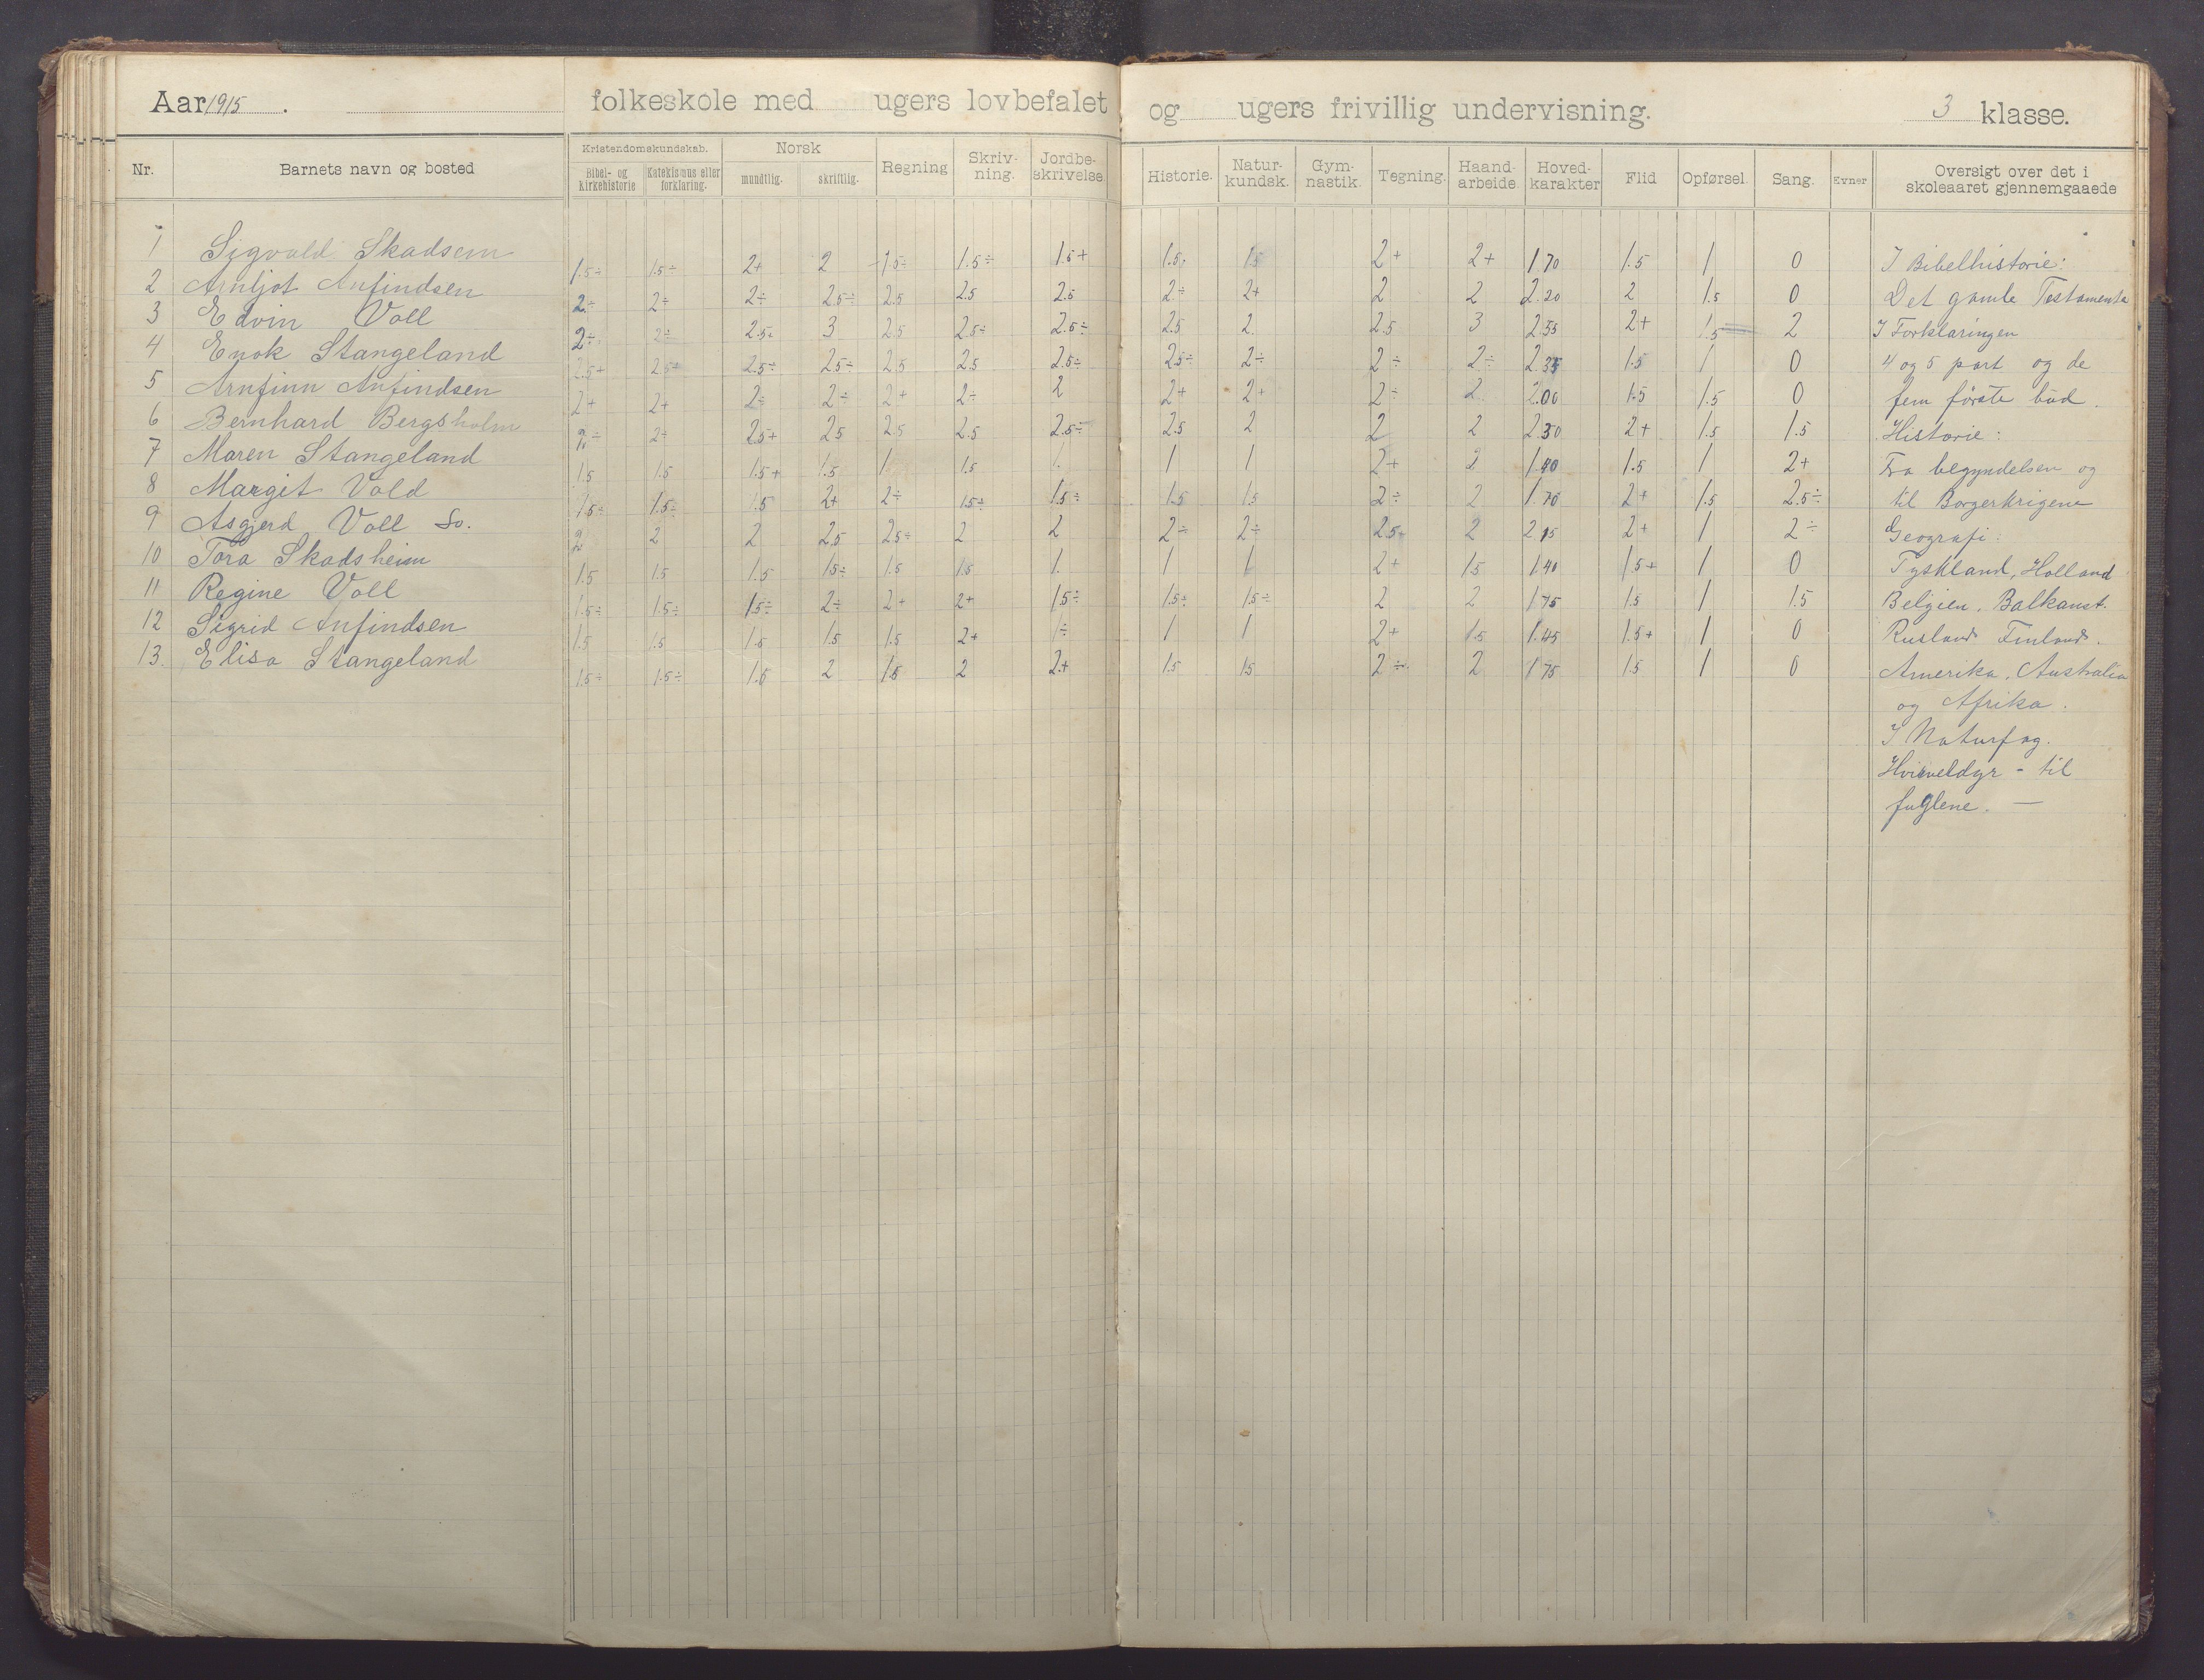 Aar 1915. folkeskole med ugers lovbefalet og ugers frivillig undervisning. 3 klasse.
Nr. Barnets navn og bosted Kristendomskundskab. Bibel- og Kirkehistorie Katekismus eller forklaring. Norsk mundtlig. skriftlig. Regning Skriv-ning. Jordbe-skrivelse Historie. Natur-kundsk. Gym-nastik. Tegning. Haand-arbeide Hoved-karakter Flid Opførsel. Sang. Evner Oversigt over det i skoleaaret gjennemgaaede
1 Sigvald Skadsem 1.5÷ 1.5÷ 2+ 2 1.5÷ 1.5÷ 1.5+ 1.5÷ 1.5 2+ 2+ 1.70 1.5 1 0 I Bibelhistorie:
2 Arnljot Anfindsen 2÷ 2÷ 2÷ 2.5÷ 2.5 2.5 2.5 2÷ 2+ 2 2 2.20 2 1.5 0 Det gamle Testamente
3 Edvin Voll 2÷ 2÷ 2.5÷ 3 2.5 2.5÷ 2.5÷ 2.5 2 2.5 3 2.55 2+ 1.5 2 I Forklaringen
4 Enok Stangeland 2.5+ 2.5+ 2.5÷ 2.5÷ 2.5 2.5 2.5÷ 2.5÷ 2÷ 2÷ 2÷ 2.35 1.5 1 0 4 og 5 part og de
5 Arnfinn Anfindsen 2+ 2+ 2÷ 2÷ 2+ 2÷ 2 2+ 2+ 2÷ 2 2.00 1.5 1.5 0 fem første bud.
6 Bernhard Bergsholm 2÷ 2÷ 2.5+ 2.5 2.5 2.5 2.5÷ 2.5 2 2 2 2.30 2+ 1.5 1.5 Historie:
7 Maren Stangeland 1.5 1.5 1.5+ 1.5 1 1.5 1. 1 1 2+ 2 1.40 1.5 1 2+ Fra begyndelsen og
8 Margit Vold 1.5÷ 1.5÷ 1.5 2+ 2÷ 1.5÷ 1.5÷ 1.5 1.5 2÷ 2 1.70 2+ 1.5 2.5÷ til Borgerkrigene
9 Asgjerd Voll So. 2 2 2 2.5 2.5÷ 2 2 2÷ 2÷ 2.5+ 2 2.15 2+ 1 2÷ Geografi:
10 Tora Skadsheim 1.5 1.5 1.5 1.5÷ 1.5 1.5 1. 1 1 2+ 1.5 1.40 1.5+ 1 0 Tyskland, Holland
11 Regine Voll 1.5÷ 1.5÷ 1.5÷ 2÷ 2+ 2+ 1.5÷ 1.5÷ 1.5÷ 2 2 1.75 1.5 1 1.5 Belgien. Balkanst.
12 Sigrid Anfindsen 1.5 1.5 1.5 1.5 1.5 2+ 1÷ 1 1 2+ 1.5 1.45 1.5+ 1 0 Rusland Finland.
13. Elisa Stangeland 1.5÷ 1.5÷ 1.5 2 1.5 2 2+ 1.5 1.5 2÷ 2 1.75 1.5 1 0 Amerika. Australia
og Afrika.
I Naturfag.
Hvirveldyr - til
fuglene. —